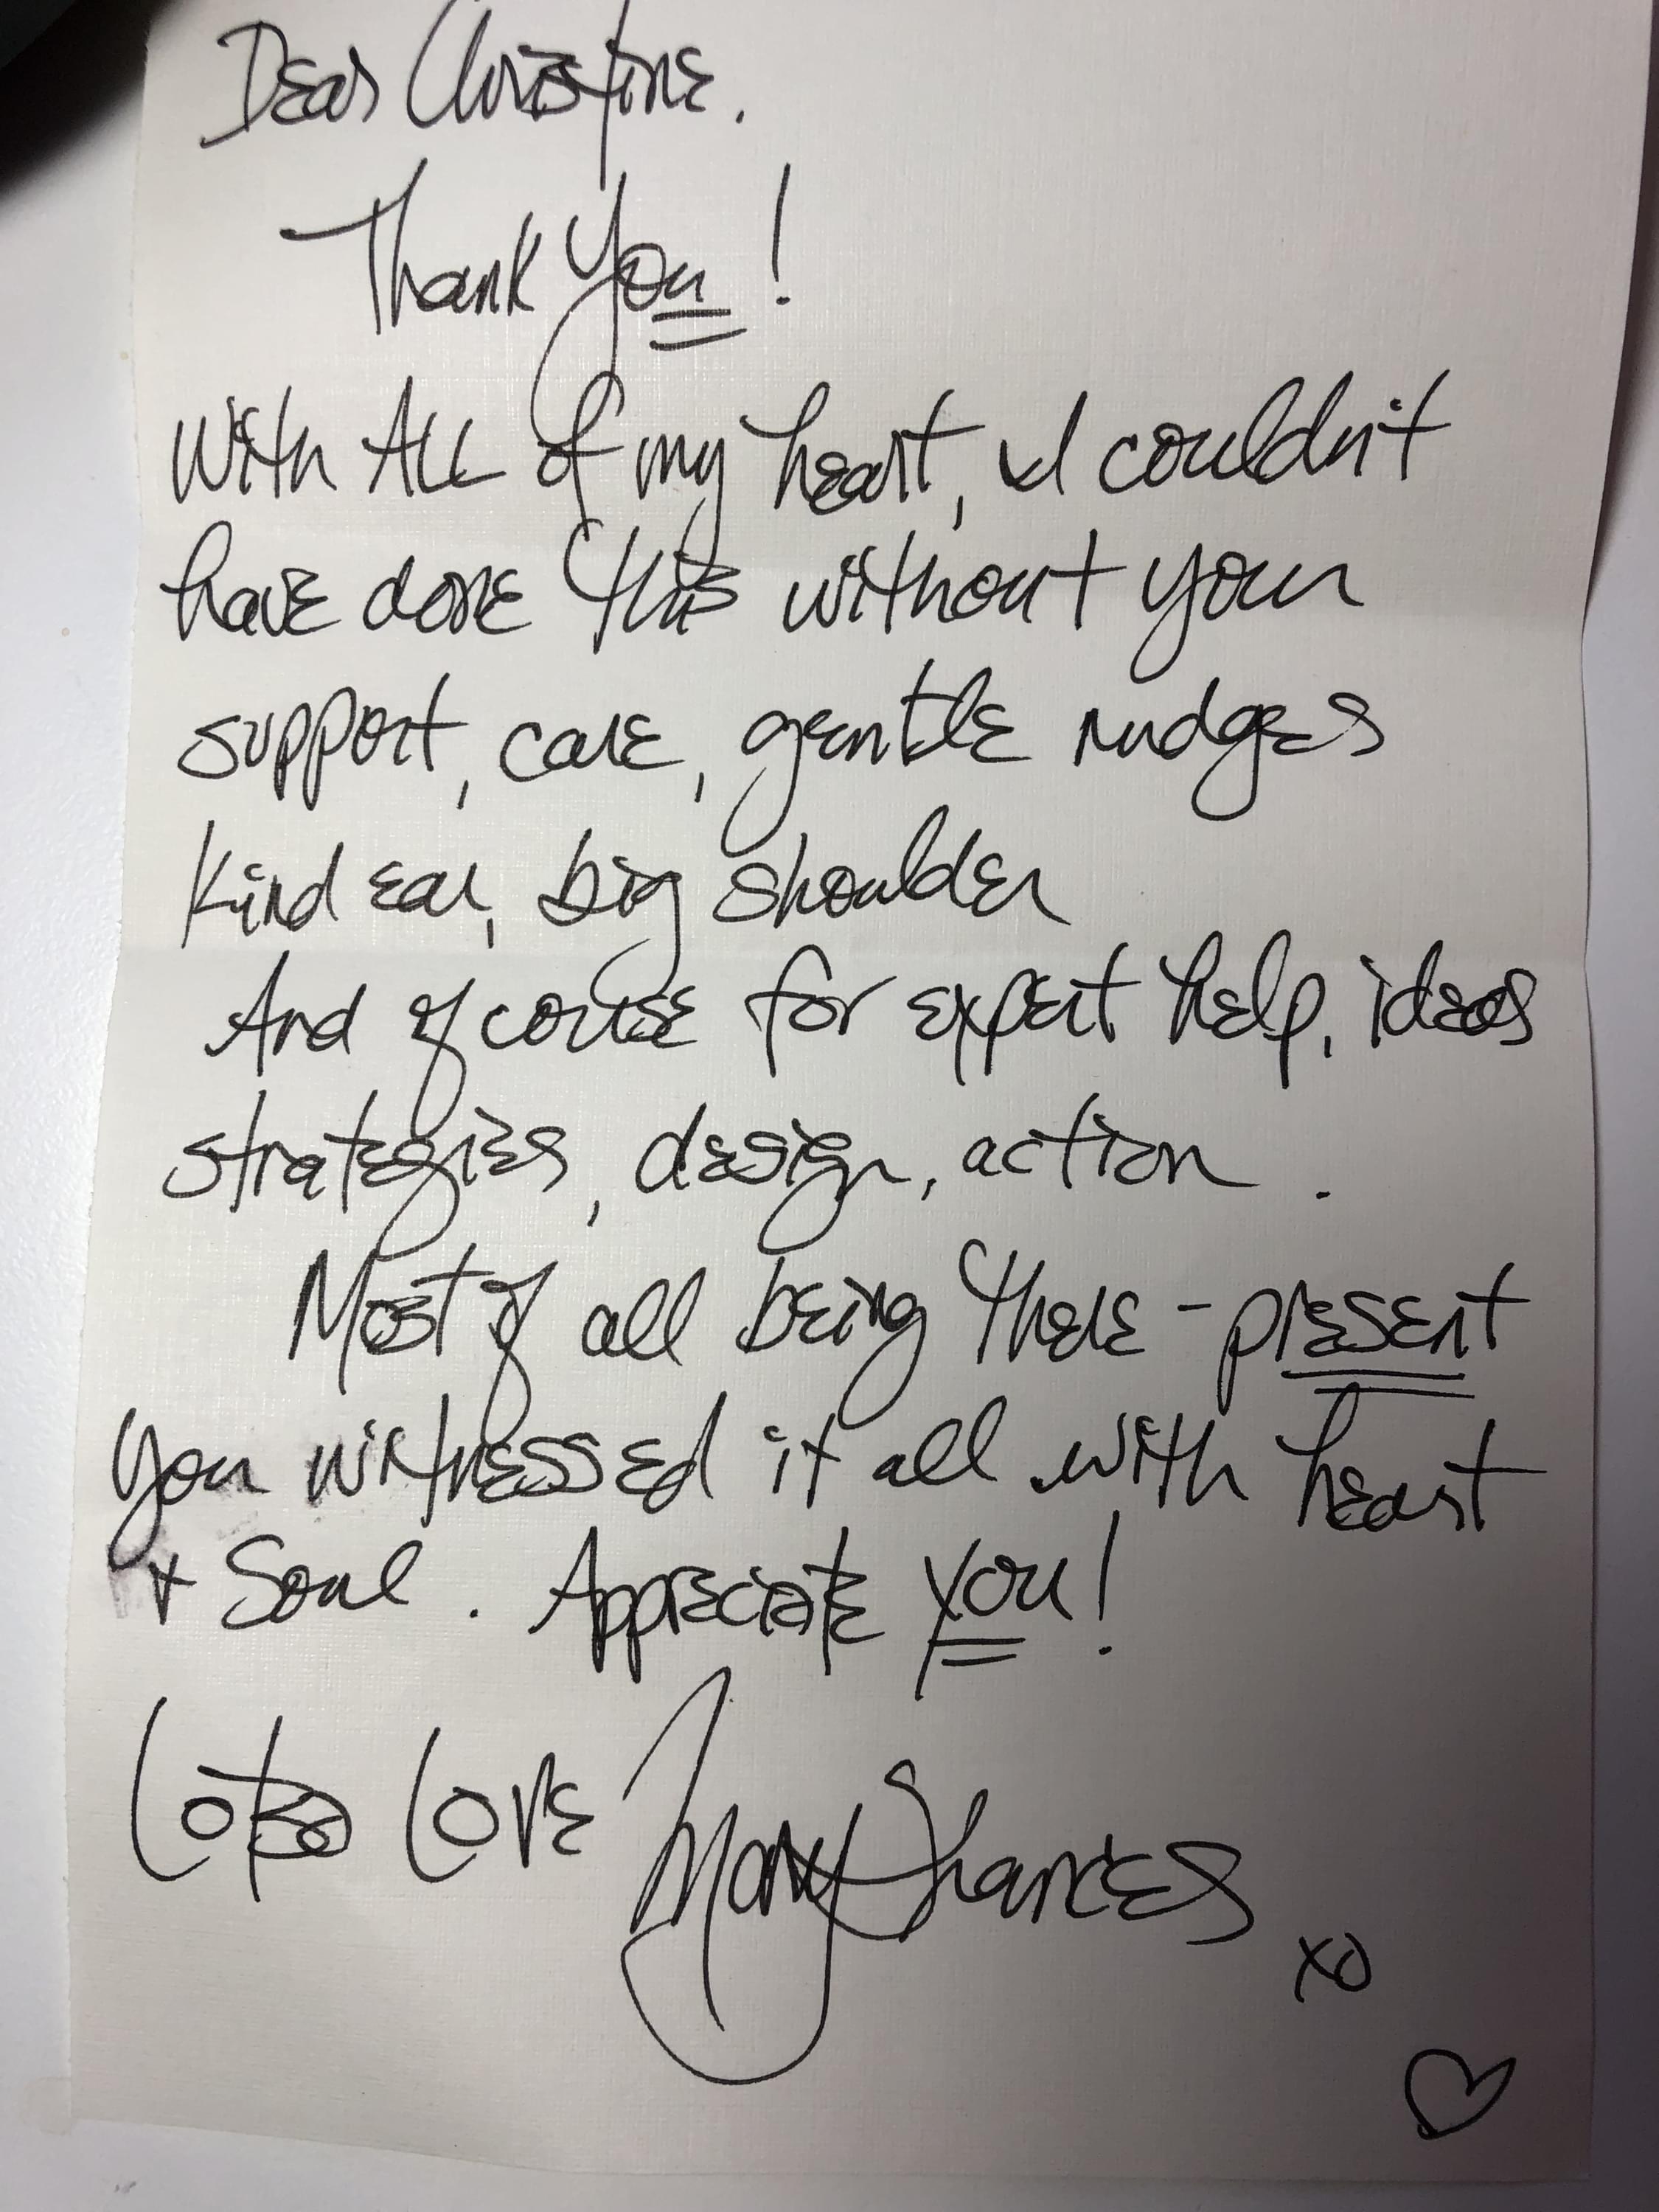 Dear Christine.
Thank you!
With ALL of my heart, I couldn't
have done this without your
support, care, gentle nudges
kind ear, big shoulder
And of course for expert help, ideas
strategies, design, action.
Most of all being there - present
you witnessed it all with heart
+ Soul. Appreciate you!
Lotsa Love Many thanks
xo
♡